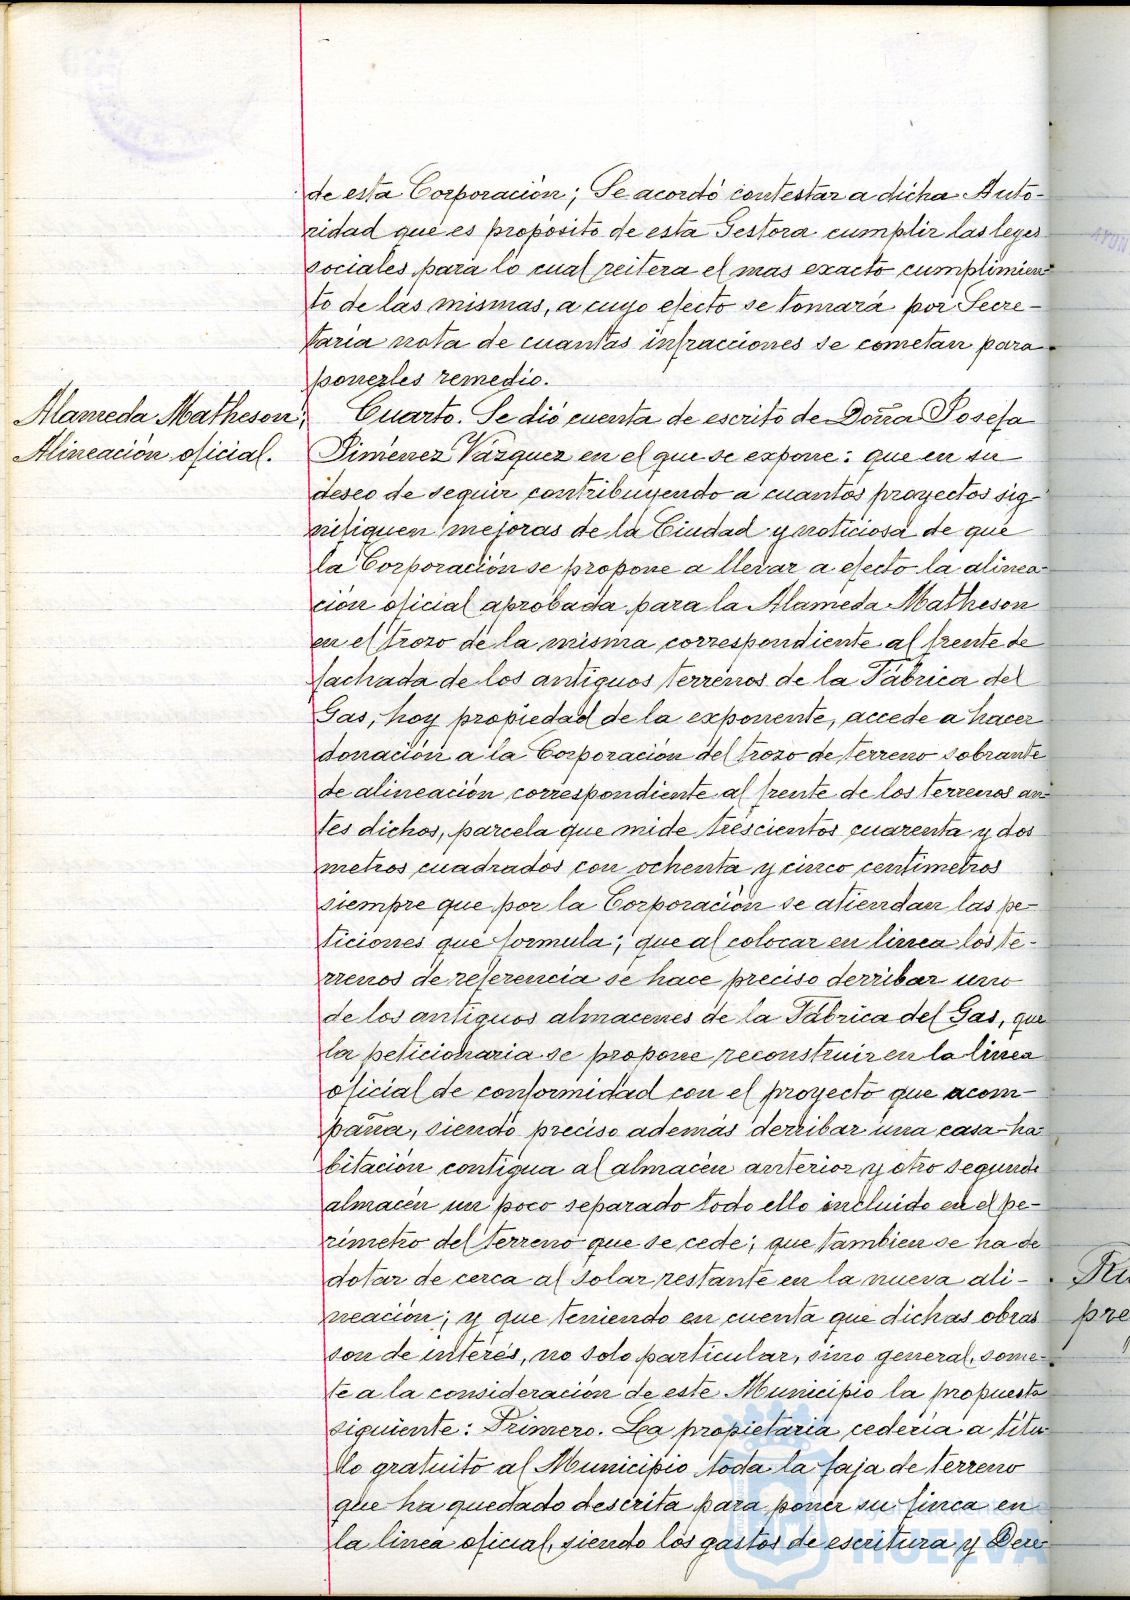 de esta Corporación; Se acordó contestar a dicha Auto-
ridad que es propósito de esta Gestora cumplir las leyes
sociales para lo cual reitera el mas exacto cumplimien-
to de las mismas, a cuyo efecto se tomará por Secre-
taría nota de cuantas infracciones se cometan para
ponerles remedio.
Alameda Matheson;
Alineación oficial.
Cuarto. Se dió cuenta de escrito de Doña Josefa
Jiménez Vázquez en el que se expone: que en su
deseo de seguir contribuyendo a cuantos proyectos sig-
nifiquen mejoras de la Ciudad y noticiosa de que
la Corporación se propone a llevar a efecto la alinea-
ción oficial aprobada para la Alameda Matheson
en el trozo de la misma correspondiente al frente de
fachada de los antiguos terrenos de la Fábrica del
Gas, hoy propiedad de la exponente, accede a hacer
donación a la Corporación del trozo de terreno sobrante
de alineación correspondiente al frente de los terrenos an-
tes dichos, parcela que mide trescientos cuarenta y dos
metros cuadrados con ochenta y cinco centímetros
siempre que por la Corporación se atiendan las pe-
ticiones que formula; que al colocar en linea los te-
rrenos de referencia se hace preciso derribar uno
de los antiguos almacenes de la Fábrica del Gas, que
la peticionaria se propone reconstruir en la linea
oficial de conformidad con el proyecto que acom-
paña, siendo preciso además derribar una casa-ha-
bitación contigua al almacén anterior y otro segundo
almacén un poco separado todo ello incluido en el pe-
rímetro del terreno que se cede; que tambien se ha de
dotar de cerca al solar restante en la nueva ali-
neación; y que teniendo en cuenta que dichas obras
son de interés, no solo particular, sino general, some-
te a la consideración de este Municipio la propuesta
siguiente: Primero. La propietaria cedería a títu-
lo gratuito al Municipio toda la faja de terreno
que ha quedado descrita para poner su finca en
la linea oficial, siendo los gastos de escritura y Dere
Ayuntamiento de
HUELVA